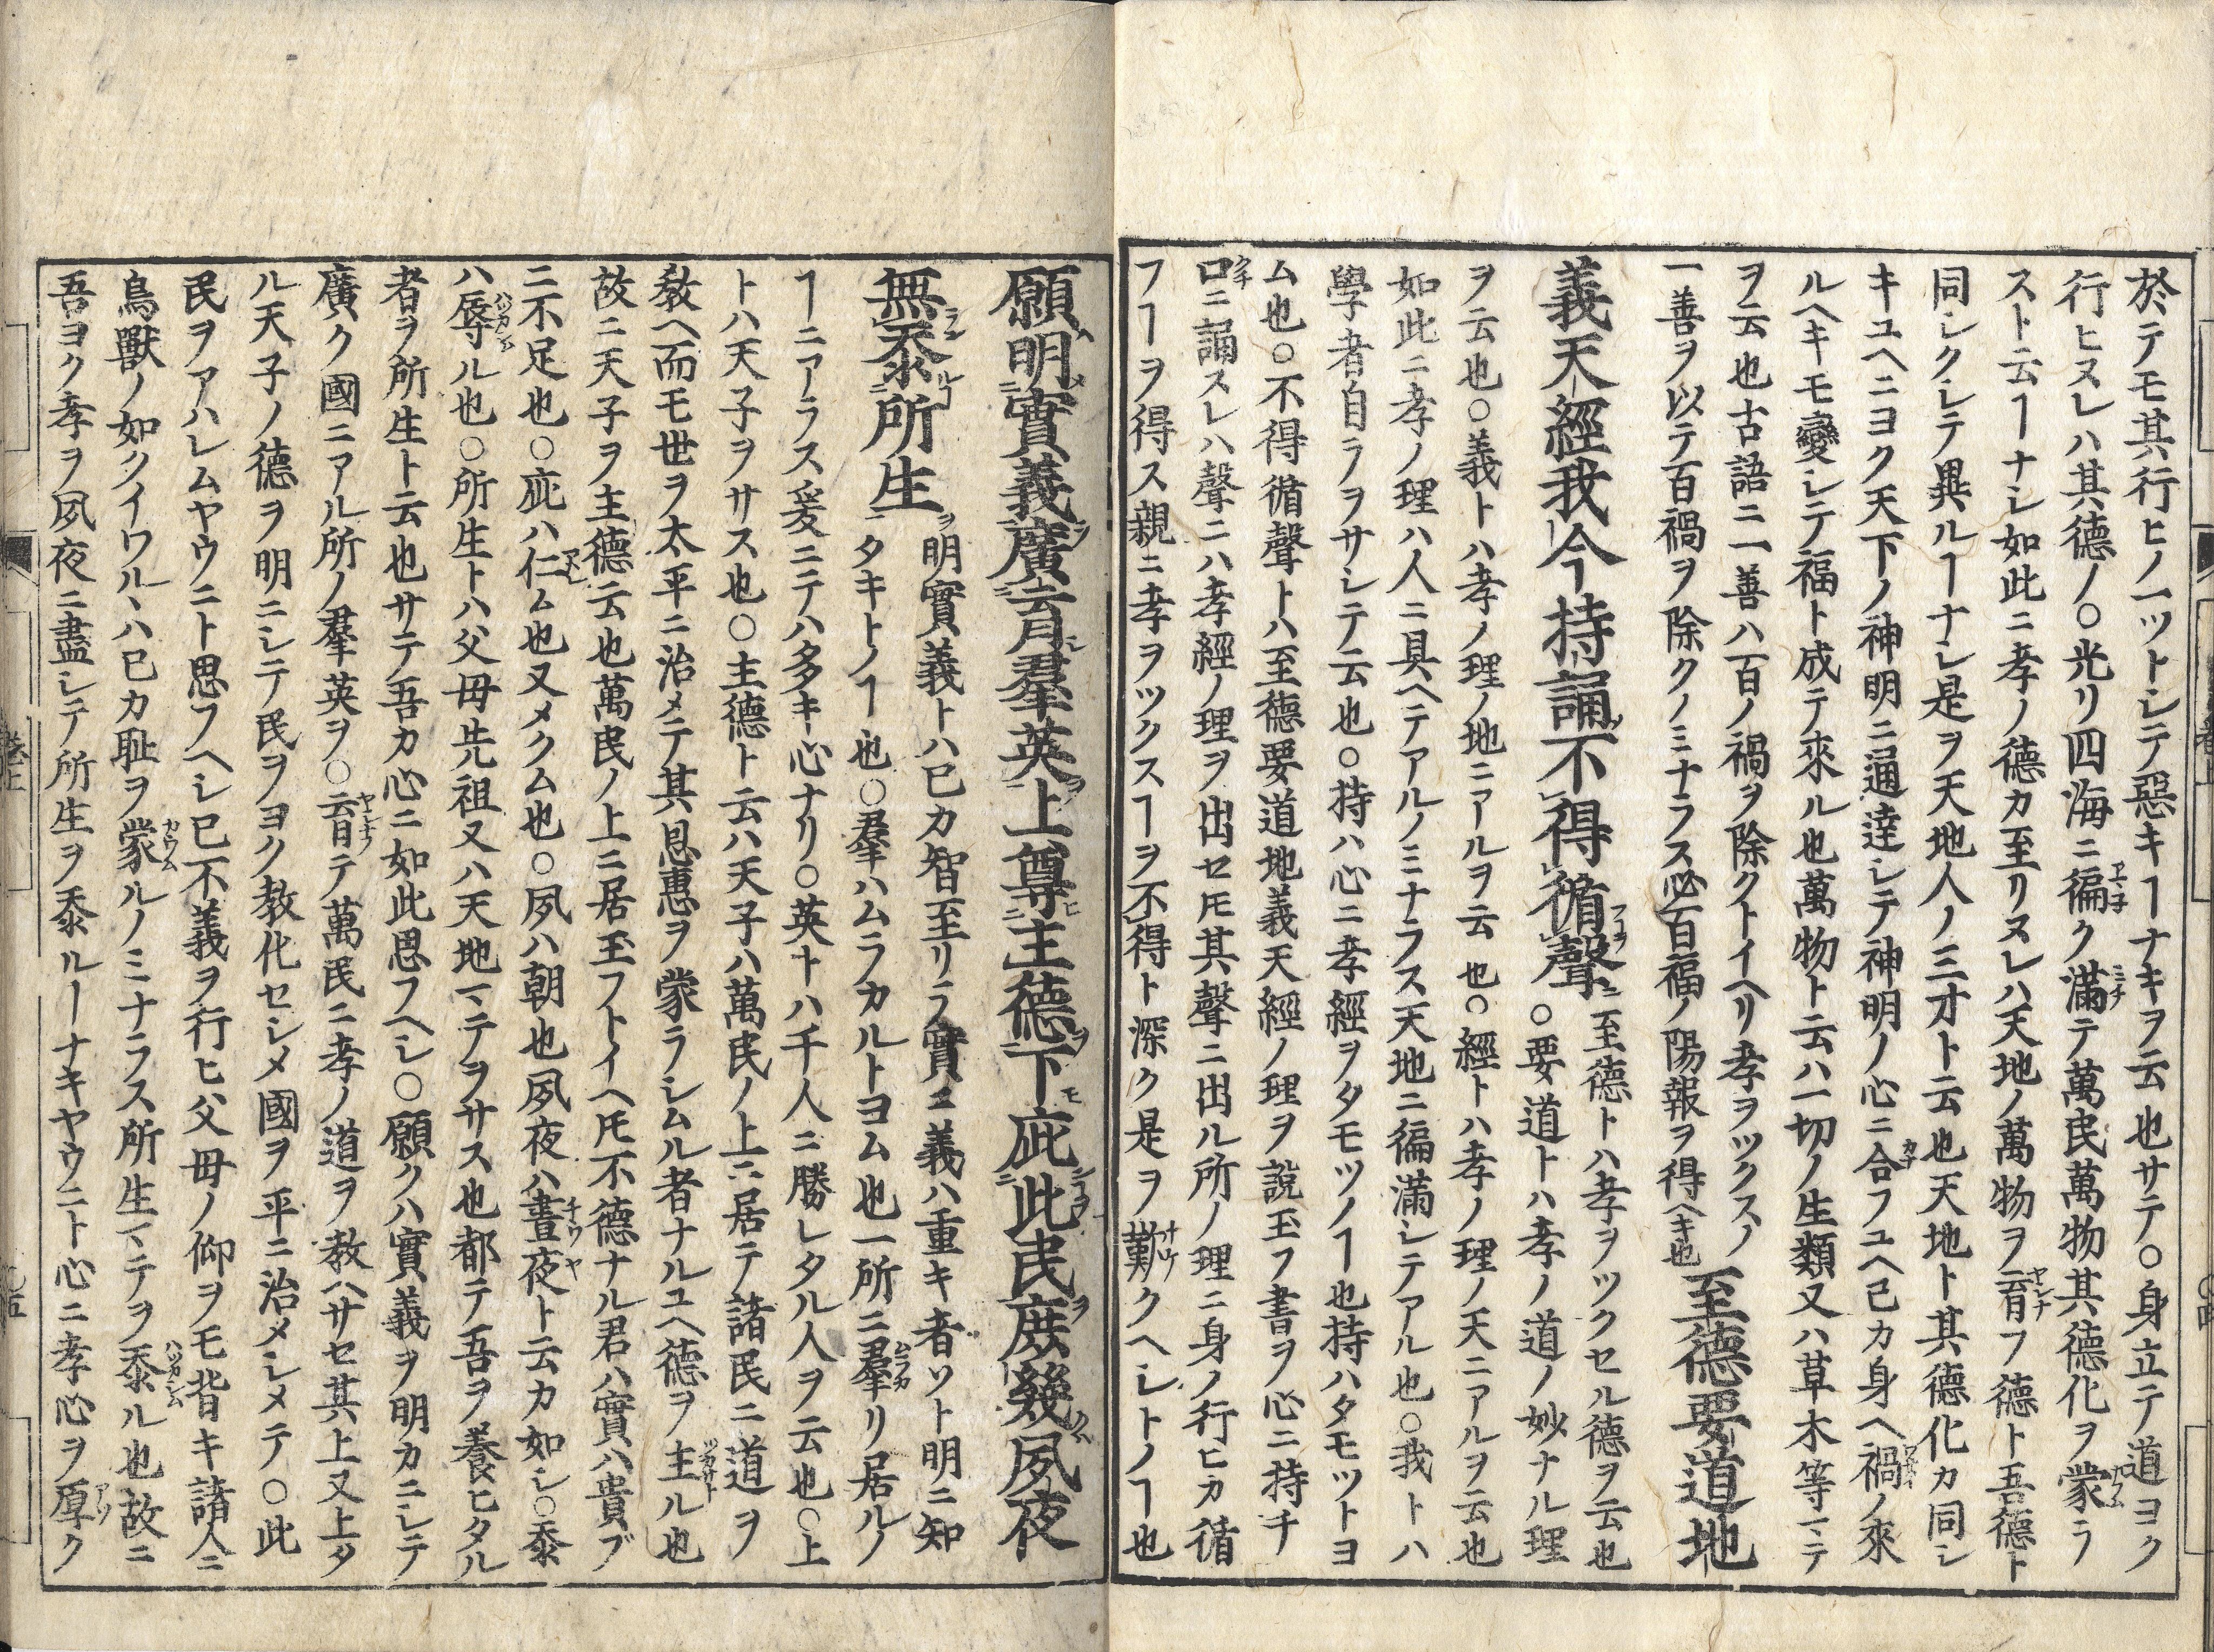 於テモ其行ヒノ一ットシテ惡キヿナキヲ云也サテ○身立テ道ヨク
行ヒヌレハ其德ノ○光リ四海ニ徧ク滿テ萬民萬物其德化ヲ蒙ラ
スト云ヿナシ如此ニ孝ノ德カ至リヌレハ天地ノ萬物ヲ育フ德ト吾德ト
同シクシテ異ルヿナシ是ヲ天地人ノ三才ト云也天地ト其德化カ同シ
キユヘニヨク天下ノ神明ニ通達シテ神明ノ心ニ合フユヘ己カ身ヘ禍ノ來
ルヘキモ變シテ福ト成テ來ル也萬物ト云ハ一切ノ生類又ハ草木等マテ
ヲ云也古語ニ一善ハ百ノ禍ヲ除クトイヘリ孝ヲツクスノ
一善ヲ以テ百禍ヲ除クノミナラス必百福ノ陽報ヲ得ヘキ也 至德要道地
義天經我今持誦不得循聲 至德トハ孝ヲツクセル德ヲ云也
○要道トハ孝ノ道ノ妙ナル理
ヲ云也○義トハ孝ノ理ノ地ニアルヲ云也○經トハ孝ノ理ノ天ニアルヲ云也
如此ニ孝ノ理ハ人ニ具ヘテアルノミナラス天地ニ徧滿シテアル也○我トハ
學者自ラヲサシテ云也○持ハ心ニ孝經ヲタモツノヿ也持ハタモツトヨ
ム也○不得循聲トハ至德要道地義天經ノ理ヲ說玉フ書ヲ心ニ持チ
口ニ誦スレハ聲ニハ孝經ノ理ヲ出セ𪜈其聲ニ出ル所ノ理ニ身ノ行ヒカ循
フヿヲ得ス親ニ孝ヲツクスヿヲ不得ト深ク是ヲ歎クヘシトノヿ也
願明實義廣育羣英上尊主德下庇此民庶幾夙夜
無忝所生 明實義トハ己カ智至リラ實ニ義ハ重キ者ソト明ニ知
タキトノヿ也○羣ハムラカルトヨム也一所ニ羣リ居ルノ
ヿニアラス爰ニテハ多キ心ナリ○英トハ千人ニ勝レタル人ヲ云也○上
トハ天子ヲサス也○主德ト云ハ天子ハ萬民ノ上ニ居テ諸民ニ道ヲ
敎ヘ而モ世ヲ太平ニ治メテ其恩惠ヲ蒙ラシムル者ナルユヘ德ヲ主ル也
故ニ天子ヲ主德云也萬民ノ上ニ居玉フトイヘ𪜈不德ナル君ハ實ハ貴ブ
ニ不足也○庇ハ仁ム也又メクム也○夙ハ朝也夙夜ハ晝夜ト云カ如シ○忝
ハ辱ル也○所生トハ父母先祖又ハ天地マテヲサス也都テ吾ヲ養ヒタル
者ヲ所生ト云也サテ吾カ心ニ如此思フヘシ○願クハ實義ヲ明カニシテ
廣ク國ニアル所ノ羣英ヲ○育テ萬民ニ孝ノ道ヲ敎ヘサセ其上又上タ
ル天子ノ德ヲ明ニシテ民ヲヨク敎化セシメ國ヲ平ニ治メシメテ○此
民ヲアハレムヤウニト思フヘシ己不義ヲ行ヒ父母ノ仰ヲモ背キ諸人ニ
鳥獸ノ如クイワルヽハ己カ耻ヲ蒙ルノミナラス所生マテヲ忝ル也故ニ
吾ヨク孝ヲ夙夜ニ盡シテ所生ヲ忝ルヿナキヤウニト心ニ孝心ヲ厚ク